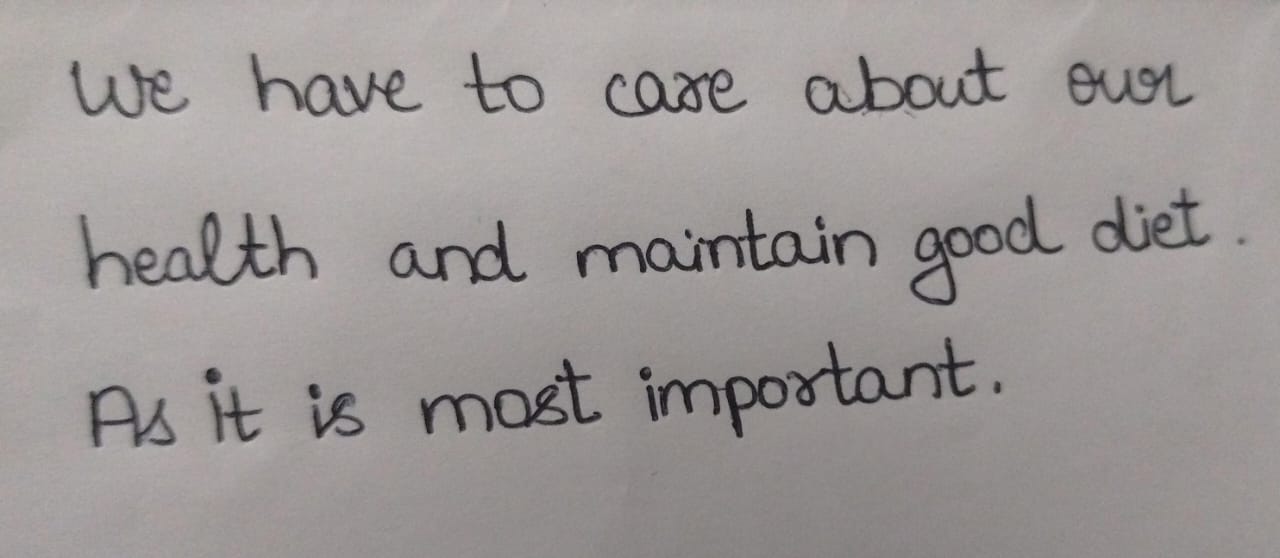 We have to care about our
health and maintain good diet.
As it is most important.